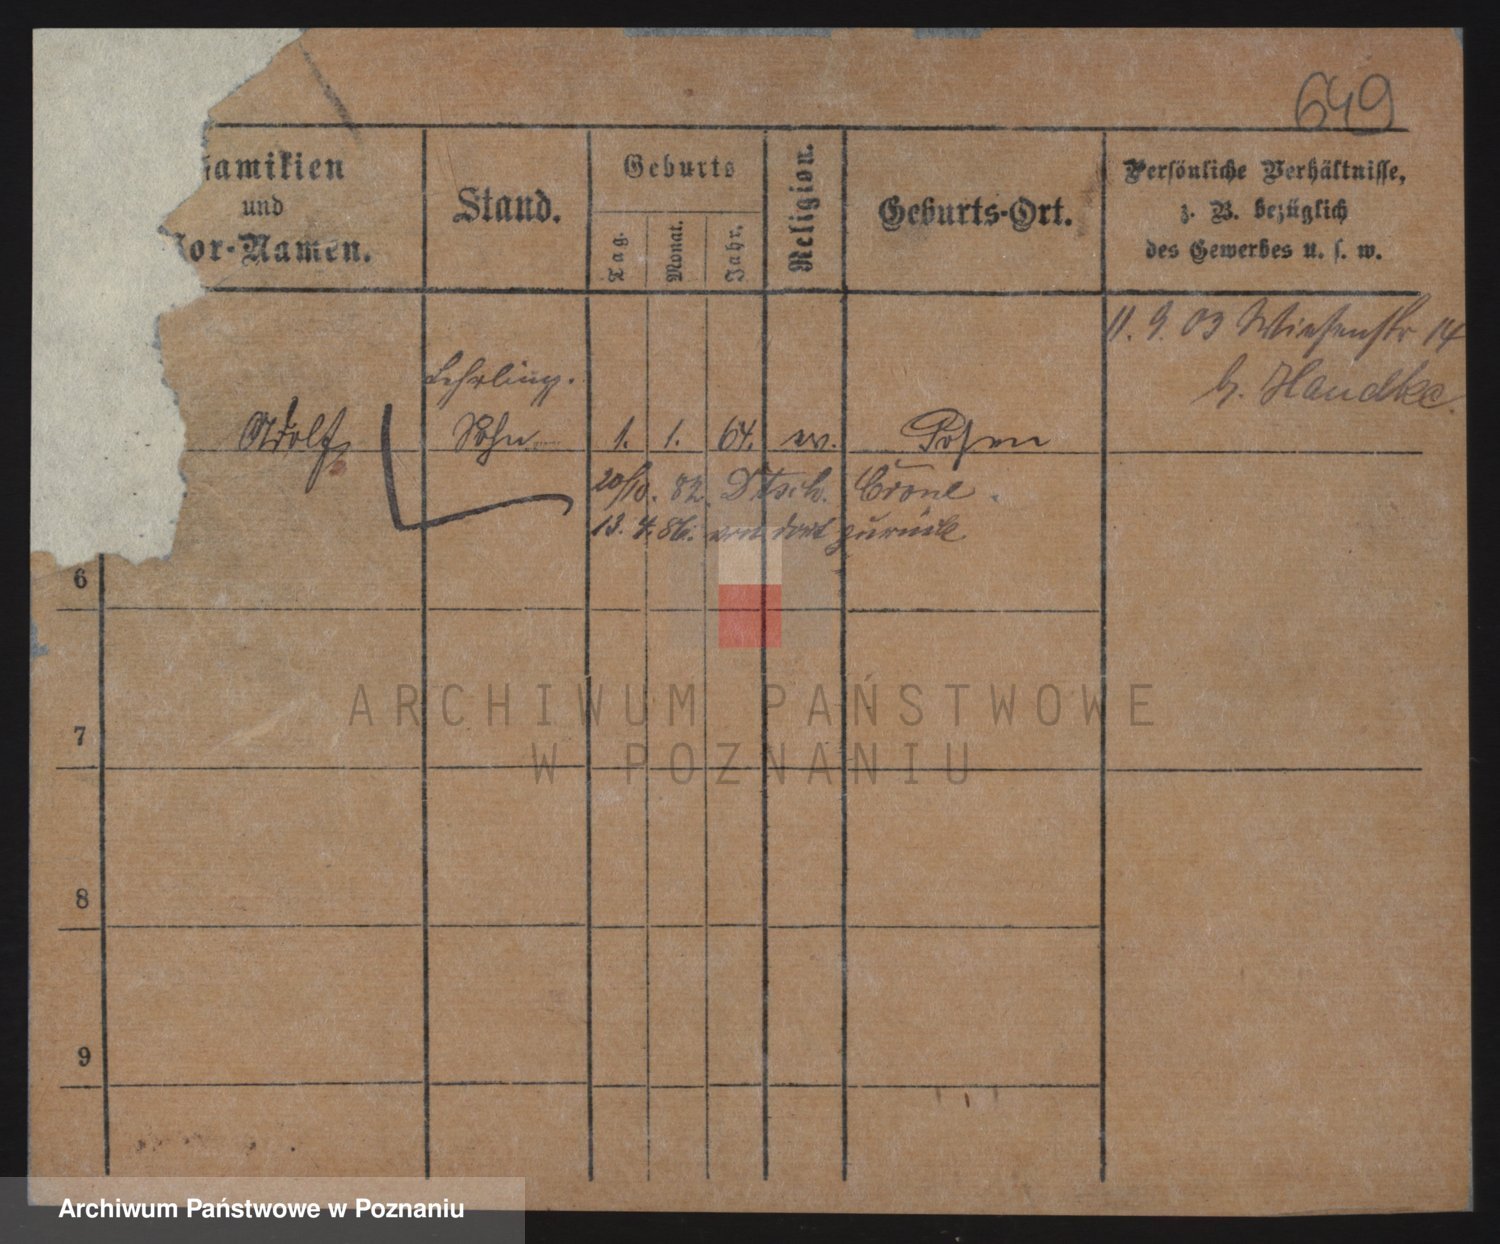 649
Familien
und
Vor-Namen.
Stand.
Geburts
Tag.
Monat.
Jahr.
Religion.
Geburts-Ort.
Persönliche Verhältnisse,
z. B. bezüglich
des Gewerbes u. s. w.
11. 9. 03 Wiesenstr 14
b. Handke.
Lehrling.
Adolf Sohn 1. 1. 64. ev. Posen
20/10. 82. Dtsch. Crone.
13. 4. 86. von dort zurück
6
7
8
9
ARCHIWUM PAŃSTWOWE
W POZNANIU
Archiwum Państwowe w Poznaniu